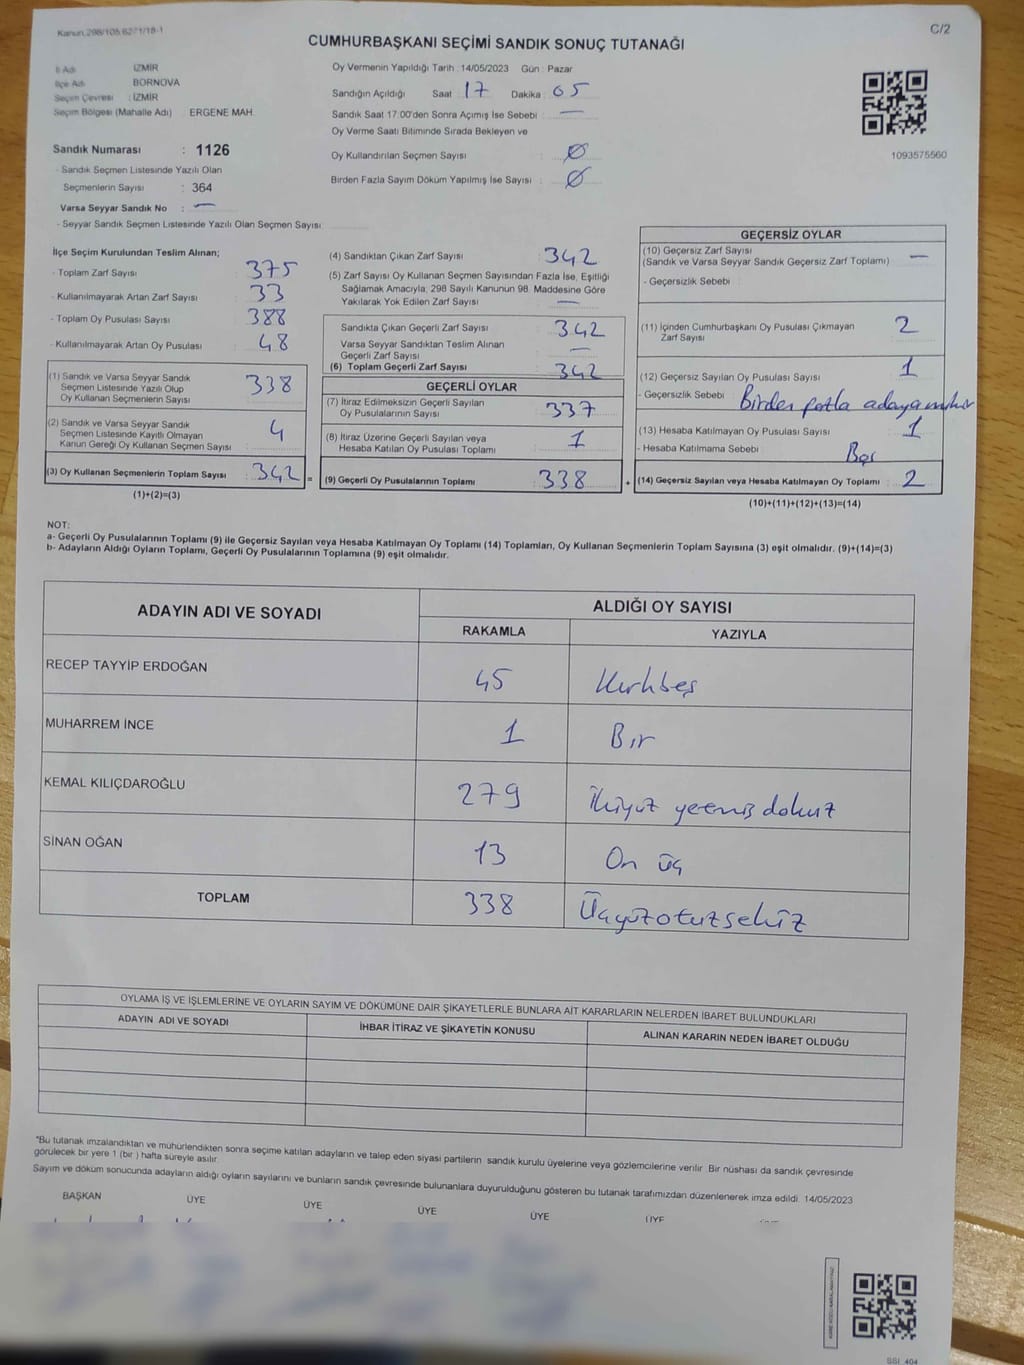 Kanun:298/105,6271/18-1
C/2
CUMHURBAŞKANI SEÇİMİ SANDIK SONUÇ TUTANAĞI
İl Adı : İZMİR
İlçe Adı : BORNOVA
Seçim Çevresi : İZMİR
Seçim Bölgesi (Mahalle Adı) : ERGENE MAH.
Sandık Numarası : 1126
- Sandık Seçmen Listesinde Yazılı Olan
Seçmenlerin Sayısı : 364
Varsa Seyyar Sandık No : —
- Seyyar Sandık Seçmen Listesinde Yazılı Olan Seçmen Sayısı:
Oy Vermenin Yapıldığı Tarih : 14/05/2023 Gün : Pazar
Sandığın Açıldığı Saat : 17 Dakika : 05
Sandık Saat 17.00'den Sonra Açımış İse Sebebi : —
Oy Verme Saati Bitiminde Sırada Bekleyen ve
Oy Kullandırılan Seçmen Sayısı : Ø
Birden Fazla Sayım Döküm Yapılmış İse Sayısı : Ø
1093575560
İlçe Seçim Kurulundan Teslim Alınan;
- Toplam Zarf Sayısı : 375
- Kullanılmayarak Artan Zarf Sayısı : 33
- Toplam Oy Pusulası Sayısı : 388
- Kullanılmayarak Artan Oy Pusulası : 48
(1) Sandık ve Varsa Seyyar Sandık
Seçmen Listesinde Yazılı Olup
Oy Kullanan Seçmenlerin Sayısı : 338
(2) Sandık ve Varsa Seyyar Sandık
Seçmen Listesinde Kayıtlı Olmayan
Kanun Gereği Oy Kullanan Seçmen Sayısı : 4
(3) Oy Kullanan Seçmenlerin Toplam Sayısı : 342
(1)+(2)=(3)
(4) Sandıktan Çıkan Zarf Sayısı : 342
(5) Zarf Sayısı Oy Kullanan Seçmen Sayısından Fazla İse, Eşitliği
Sağlamak Amacıyla; 298 Sayılı Kanunun 98. Maddesine Göre
Yakılarak Yok Edilen Zarf Sayısı : —
Sandıkta Çıkan Geçerli Zarf Sayısı : 342
Varsa Seyyar Sandıktan Teslim Alınan
Geçerli Zarf Sayısı : —
(6) Toplam Geçerli Zarf Sayısı : 342
GEÇERLİ OYLAR
(7) İtiraz Edilmeksizin Geçerli Sayılan
Oy Pusulalarının Sayısı : 337
(8) İtiraz Üzerine Geçerli Sayılan veya
Hesaba Katılan Oy Pusulası Toplamı : 1
= (9) Geçerli Oy Pusulalarının Toplamı : 338 +
GEÇERSİZ OYLAR
(10) Geçersiz Zarf Sayısı
(Sandık ve Varsa Seyyar Sandık Geçersiz Zarf Toplamı) : —
- Geçersizlik Sebebi :
(11) İçinden Cumhurbaşkanı Oy Pusulası Çıkmayan
Zarf Sayısı : 2
(12) Geçersiz Sayılan Oy Pusulası Sayısı : 1
- Geçersizlik Sebebi : Birden fazla adaya mühür
(13) Hesaba Katılmayan Oy Pusulası Sayısı : 1
- Hesaba Katılmama Sebebi : Boş
(14) Geçersiz Sayılan veya Hesaba Katılmayan Oy Toplamı : 2
(10)+(11)+(12)+(13)=(14)
NOT:
a- Geçerli Oy Pusulalarının Toplamı (9) ile Geçersiz Sayılan veya Hesaba Katılmayan Oy Toplamı (14) Toplamları, Oy Kullanan Seçmenlerin Toplam Sayısına (3) eşit olmalıdır. (9)+(14)=(3)
b- Adayların Aldığı Oyların Toplamı, Geçerli Oy Pusulalarının Toplamına (9) eşit olmalıdır.
ADAYIN ADI VE SOYADI ALDIĞI OY SAYISI
RAKAMLA YAZIYLA
RECEP TAYYİP ERDOĞAN 45 Kırkbeş
MUHARREM İNCE 1 Bir
KEMAL KILIÇDAROĞLU 279 İkiyüz yetmiş dokuz
SİNAN OĞAN 13 On üç
TOPLAM 338 Üçyüzotuzsekiz
OYLAMA İŞ VE İŞLEMLERİNE VE OYLARIN SAYIM VE DÖKÜMÜNE DAİR ŞİKAYETLERLE BUNLARA AİT KARARLARIN NELERDEN İBARET BULUNDUKLARI
ADAYIN ADI VE SOYADI İHBAR İTİRAZ VE ŞİKAYETİN KONUSU ALINAN KARARIN NEDEN İBARET OLDUĞU
*Bu tutanak imzalandıktan ve mühürlendikten sonra seçime katılan adayların ve talep eden siyasi partilerin sandık kurulu üyelerine veya gözlemcilerine verilir. Bir nüshası da sandık çevresinde
görülecek bir yere 1 (bir ) hafta süreyle asılır.
Sayım ve döküm sonucunda adayların aldığı oyların sayılarını ve bunların sandık çevresinde bulunanlara duyurulduğunu gösteren bu tutanak tarafımızdan düzenlenerek imza edildi. 14/05/2023
BAŞKAN ÜYE ÜYE ÜYE ÜYE ÜYE
SSI 404